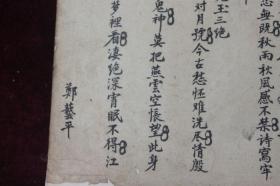 忽無晚秋雨秋風感不禁诗篱牢
玉三绝
对月號今古愁怀难洗尽情殷
鬼神莫把燕雲空悵望此身
梦裡看淒絶深宵眠不得江
鄭藝平